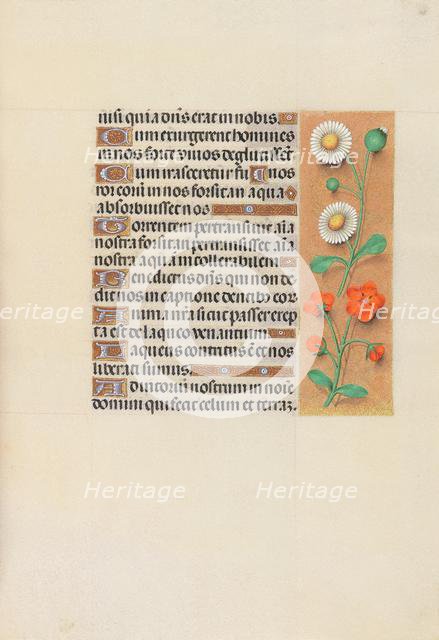 nisi quia dn̄s erat in nobis.
Cum exurgerent homines
in nos forte vivos deglutissēt
Cum irasceretur fu nos
ror eoru in nos forsitan aqua
absorbuisset nos
Torrentem pertransivit aīa
nostra forsitan pertransisset aīa
nostra aquam intollerabilem
Benedictus dn̄s qui non de
dit nos in captione dentibꝰ eor
Anima nr̄a sicut passer erep
ta est de laqueo venantium
Laqueus contritus ē et nos
liberati sumus.
Adiutoriū nostrum in noīe
domini qui fecit celum et terrā.
Heritage
Heritage
Heritage
Heritage
Heritage
Heritage